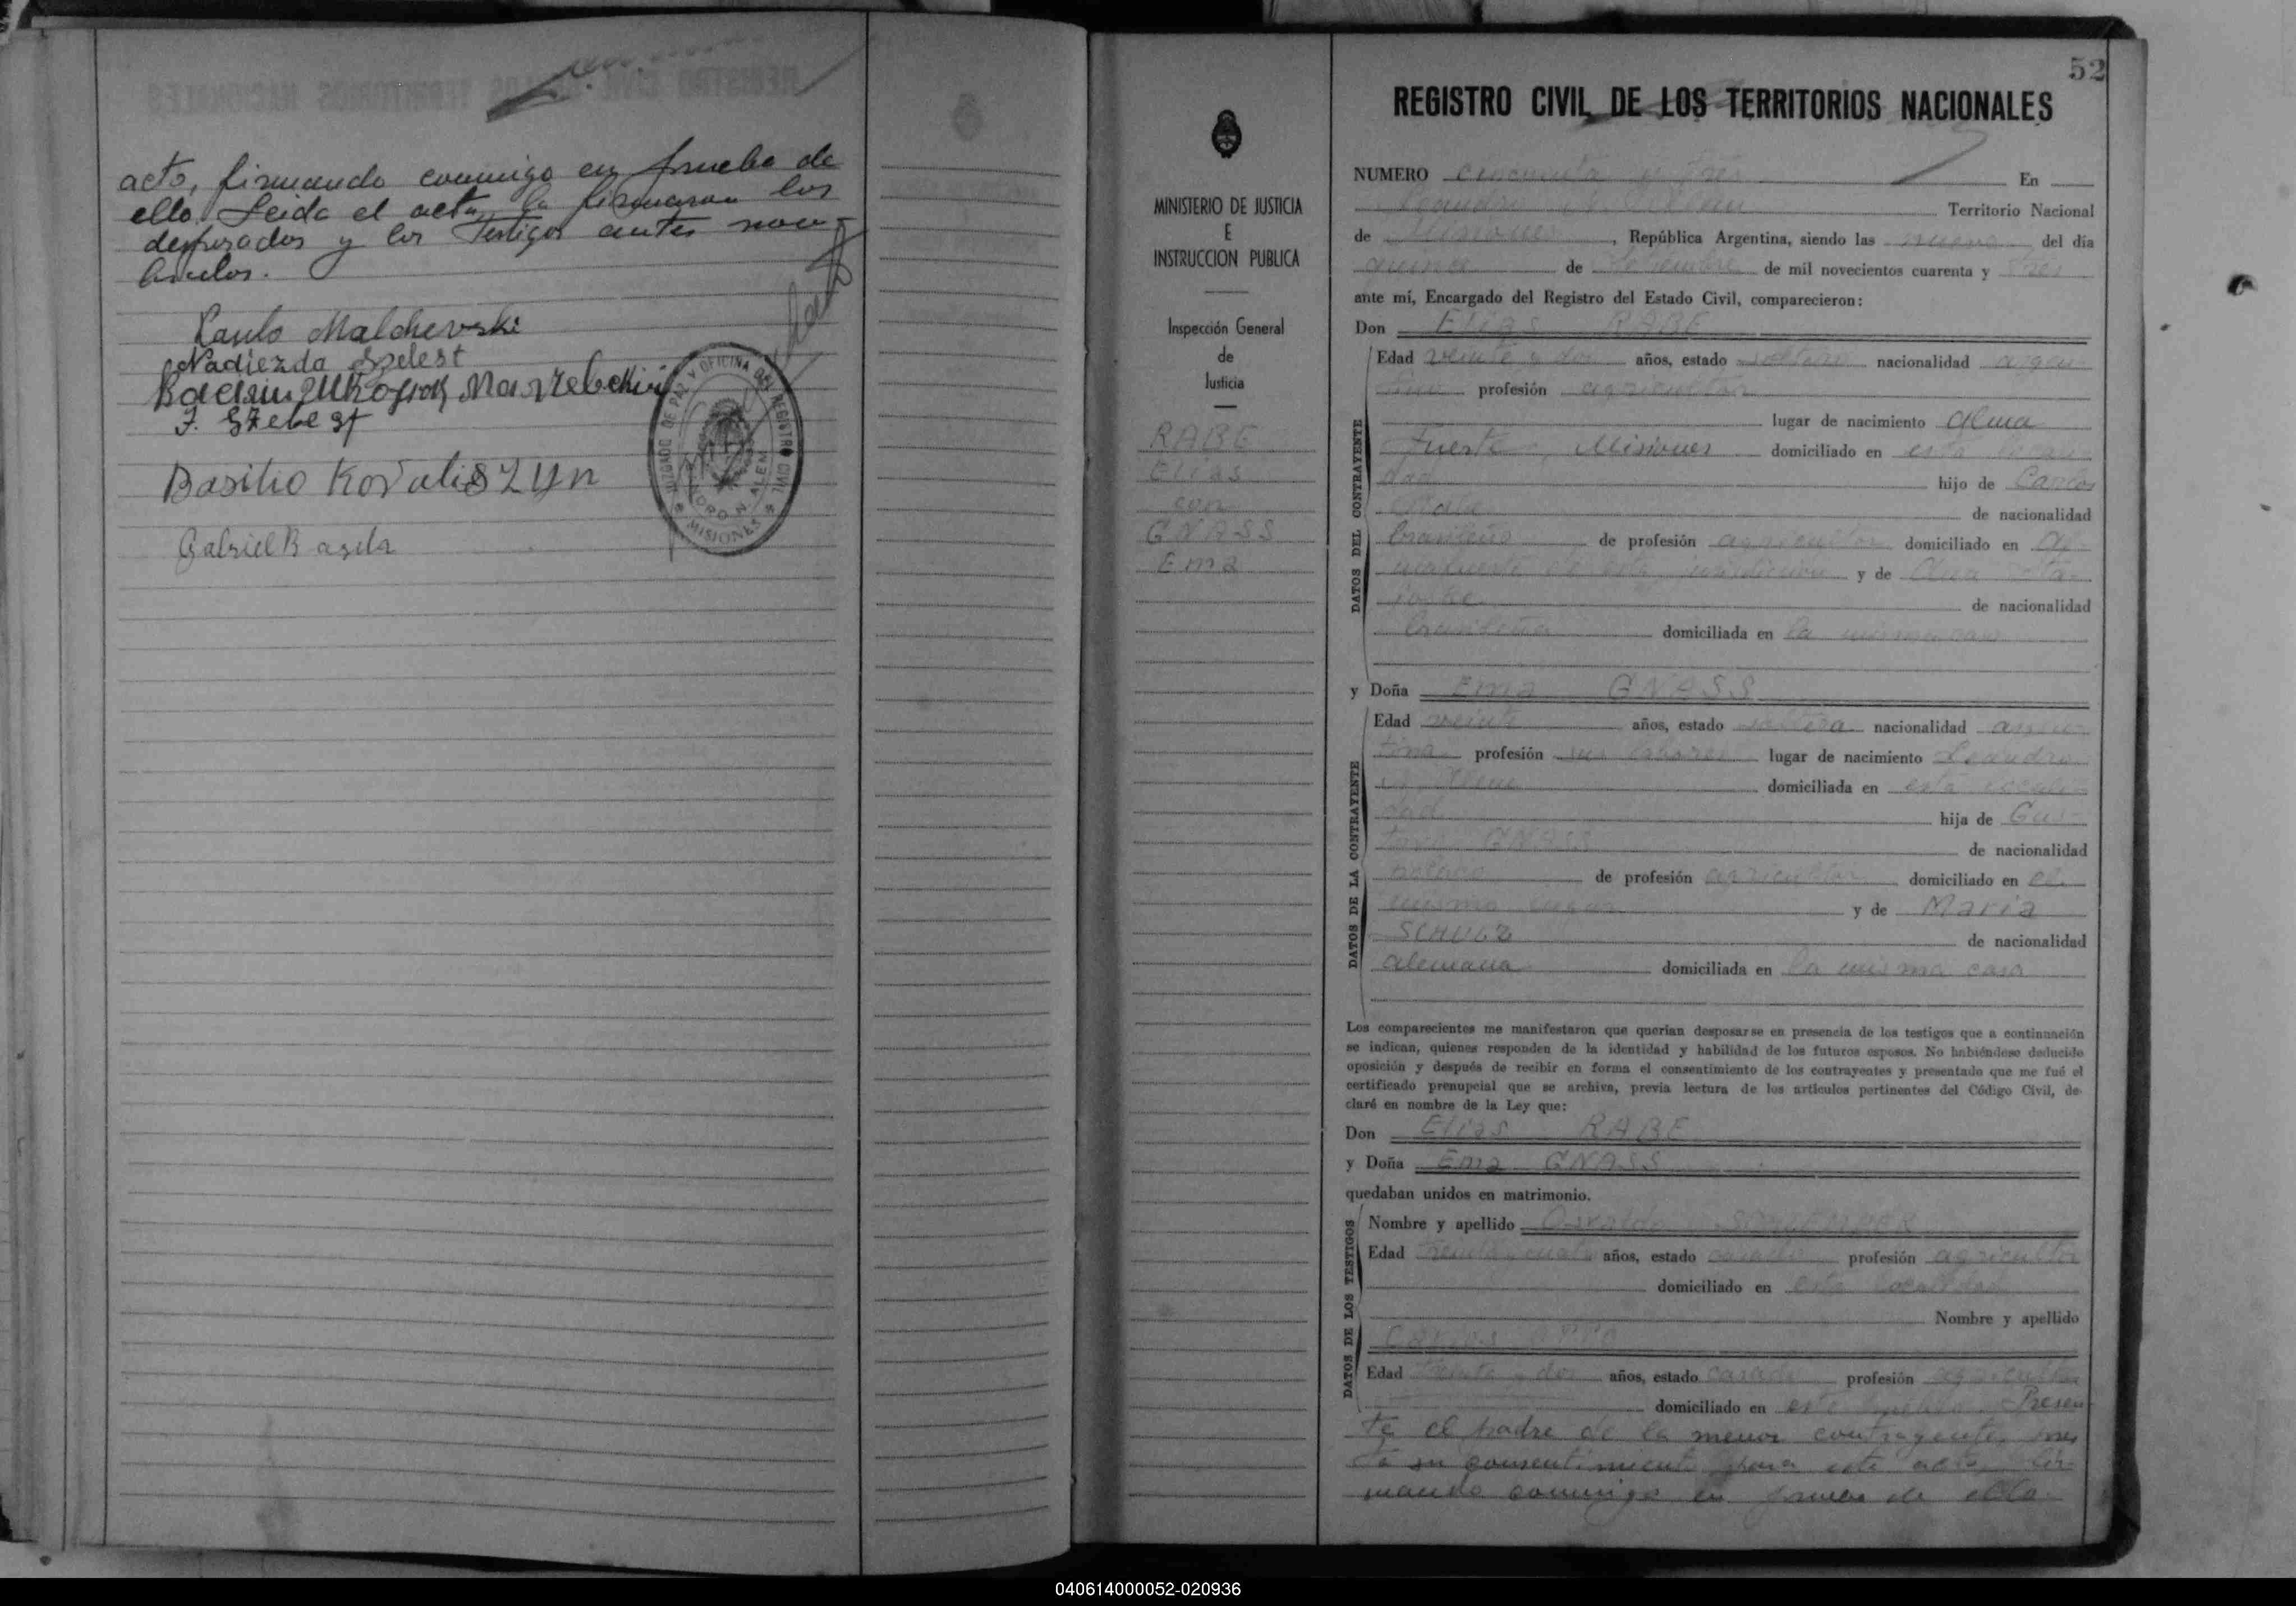 acto, firmando conmigo en prueba de
ello. Leida el acta, la firmaron los
desposados y los Testigos antes nom-
brados.
Paulo Malchevski
Nadiezda Szelest
J. Szelest
Basilio Kovaliszyn
Gabriel Basila
JUZGADO DE PAZ Y OFICINA DEL REGISTRO CIVIL
LEANDRO N. ALEM
* MISIONES *
52
REGISTRO CIVIL DE LOS TERRITORIOS NACIONALES
MINISTERIO DE JUSTICIA
E
INSTRUCCION PUBLICA
Inspección General
de
Justicia
RABE
Elías
con
GNASS
Ema
NUMERO cincuenta y tres En
Leandro N. Alem Territorio Nacional
de Misiones, República Argentina, siendo las nueve del día
quince de Setiembre de mil novecientos cuarenta y tres
ante mí, Encargado del Registro del Estado Civil, comparecieron:
Don Elías RABE
DATOS DEL CONTRAYENTE
Edad veinte y dos años, estado soltero nacionalidad argen-
tino profesión agricultor
lugar de nacimiento Alma
Fuerte, Misiones domiciliado en esta locali-
dad hijo de Carlos
Rabe de nacionalidad
brasileño de profesión agricultor domiciliado en Al-
mafuerte de esta jurisdicción y de
de nacionalidad
brasileña domiciliada en la misma casa
y Doña Ema GNASS
DATOS DE LA CONTRAYENTE
Edad veinte años, estado soltera nacionalidad argen-
tina profesión sus labores lugar de nacimiento Leandro
N. Alem domiciliada en esta locali-
dad hija de Gus-
tavo GNASS de nacionalidad
polaco de profesión agricultor domiciliado en el
mismo lugar y de María
SCHULZ de nacionalidad
alemana domiciliada en la misma casa
Los comparecientes me manifestaron que querían desposarse en presencia de los testigos que a continuación
se indican, quienes responden de la identidad y habilidad de los futuros esposos. No habiéndose deducido
oposición y después de recibir en forma el consentimiento de los contrayentes y presentado que me fué el
certificado prenupcial que se archiva, previa lectura de los artículos pertinentes del Código Civil, de-
claré en nombre de la Ley que:
Don Elías RABE
y Doña Ema GNASS
quedaban unidos en matrimonio.
DATOS DE LOS TESTIGOS
Nombre y apellido Osvaldo
Edad años, estado casado profesión agricultor
domiciliado en esta localidad
Nombre y apellido
Carlos OTTO
Edad treinta y dos años, estado casado profesión agricultor
domiciliado en este pueblo. Presen-
te el padre de la menor contrayente, pres-
ta su consentimiento para este acto, fir-
mando conmigo en prueba de ello.
040614000052-020936